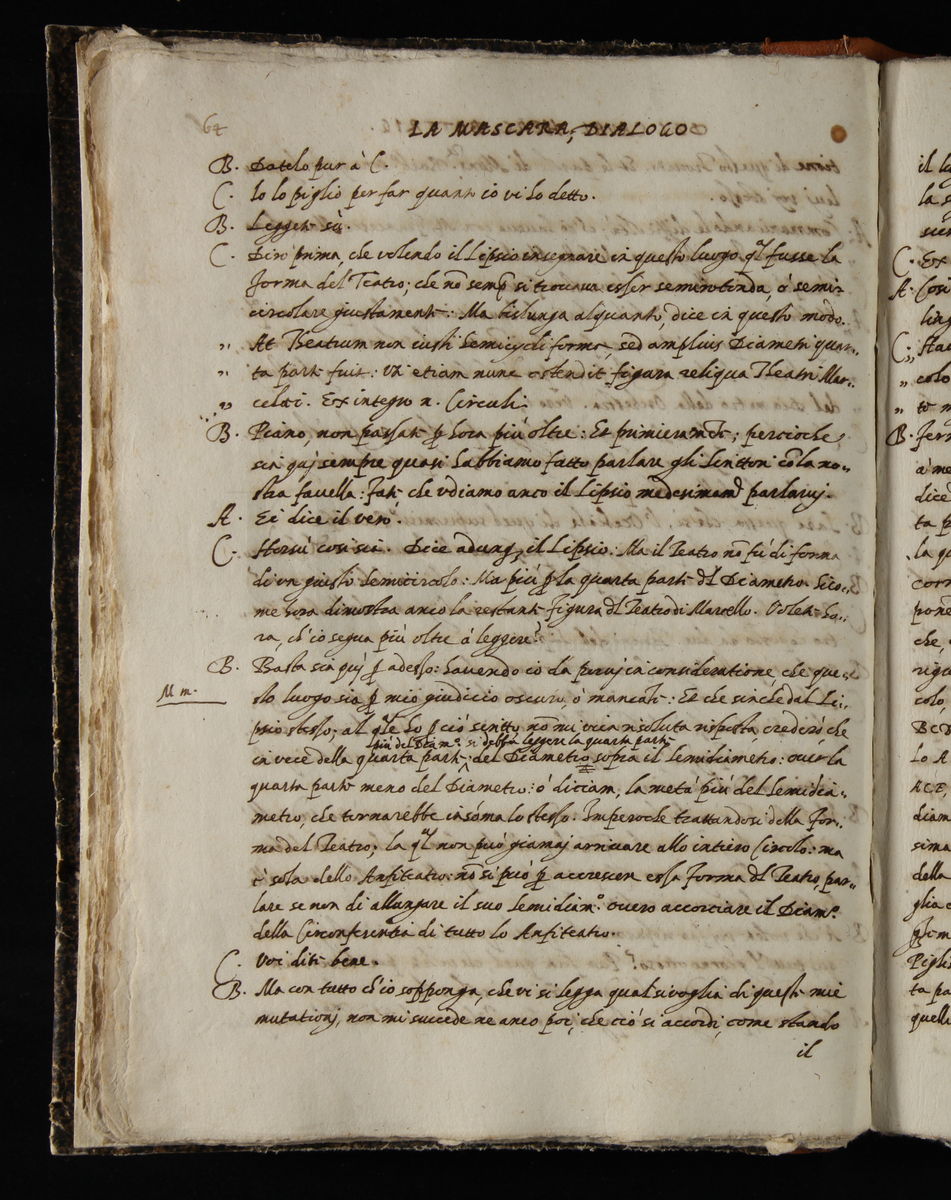 64
LA MASCARA, DIALOGO
B. Datelo pur à C.
C. Io lo piglio per far quanto iò vi hò detto.
B. Leggete sù.
C. Dirò prima, che volendo il Lipsio insegnare in questo luogo ql fusse la
forma del Teatro; che nō semp si trovava esser semirotonda, ò semi-
circolare giustamente: Ma bislunga alquanto, dice in questo modo.
„ At Theatrum non iusti hemicycli forma, sed amplius Diametri quar-
„ ta parte fuit: Vti etiam nunc ostendit figura reliqua Theatri Mar-
„ celli. Ex integro n. Circuli
B. Piano, non passate p hora più oltre: Et primieramte; percioche
sin quj sempre quasi habbiamo fatto parlare gli Scrittori cō la no-
stra favella: Fate che vdiamo anco il Lipsio medesimamē parlarvj.
A. Ei dice il vero.
C. Horsù cosi sia. Dice adunq, il Lipsio: Ma il Teatro nō fù di forma
di vn giusto semicircolo: Ma più p la quarta parte dl Diametro. Sico-
me hora dimostra anco la restante figura dl Teatro di Marcello. Volete ho-
ra, ch'iò segua più oltre à leggere?
B. Basta sin quj p adesso: havendo iò da porvj in consideratione, che que-
M m.
sto luogo sia p mio giudicio oscuro, ò mancate: Et che sinche dal Li-
psio stesso, al qle hò p ciò scritto nō mi vien risoluta risposta crederò, che
più del Diamo. si debba leggere la quarta parte
in vece della quarta parte ^ del Diametro sopra il semidiametro: over la
quarta parte meno del Diametro: ò diciam, la metà più del semidia-
metro, che tornarebbe in sōma lo stesso. Imperoche trattandosi della for-
ma del Teatro; la ql non può giamaj arrivare allo intiero Circolo: ma
è sola dello Anfiteatro: nō si può p accrescer essa forma dl Teatro, par-
lare se non di allungare il suo semidiamo. overo accorciare il Diamo.
della Circonferentia di tutto lo Anfiteatro.
C. Voi dite bene.
B. Ma con tutto ch'iò sopponga, che vi si legga qual si voglia di queste mie
mutationj, non mi succede ne anco poi, che ciò si accordi, come stando
il